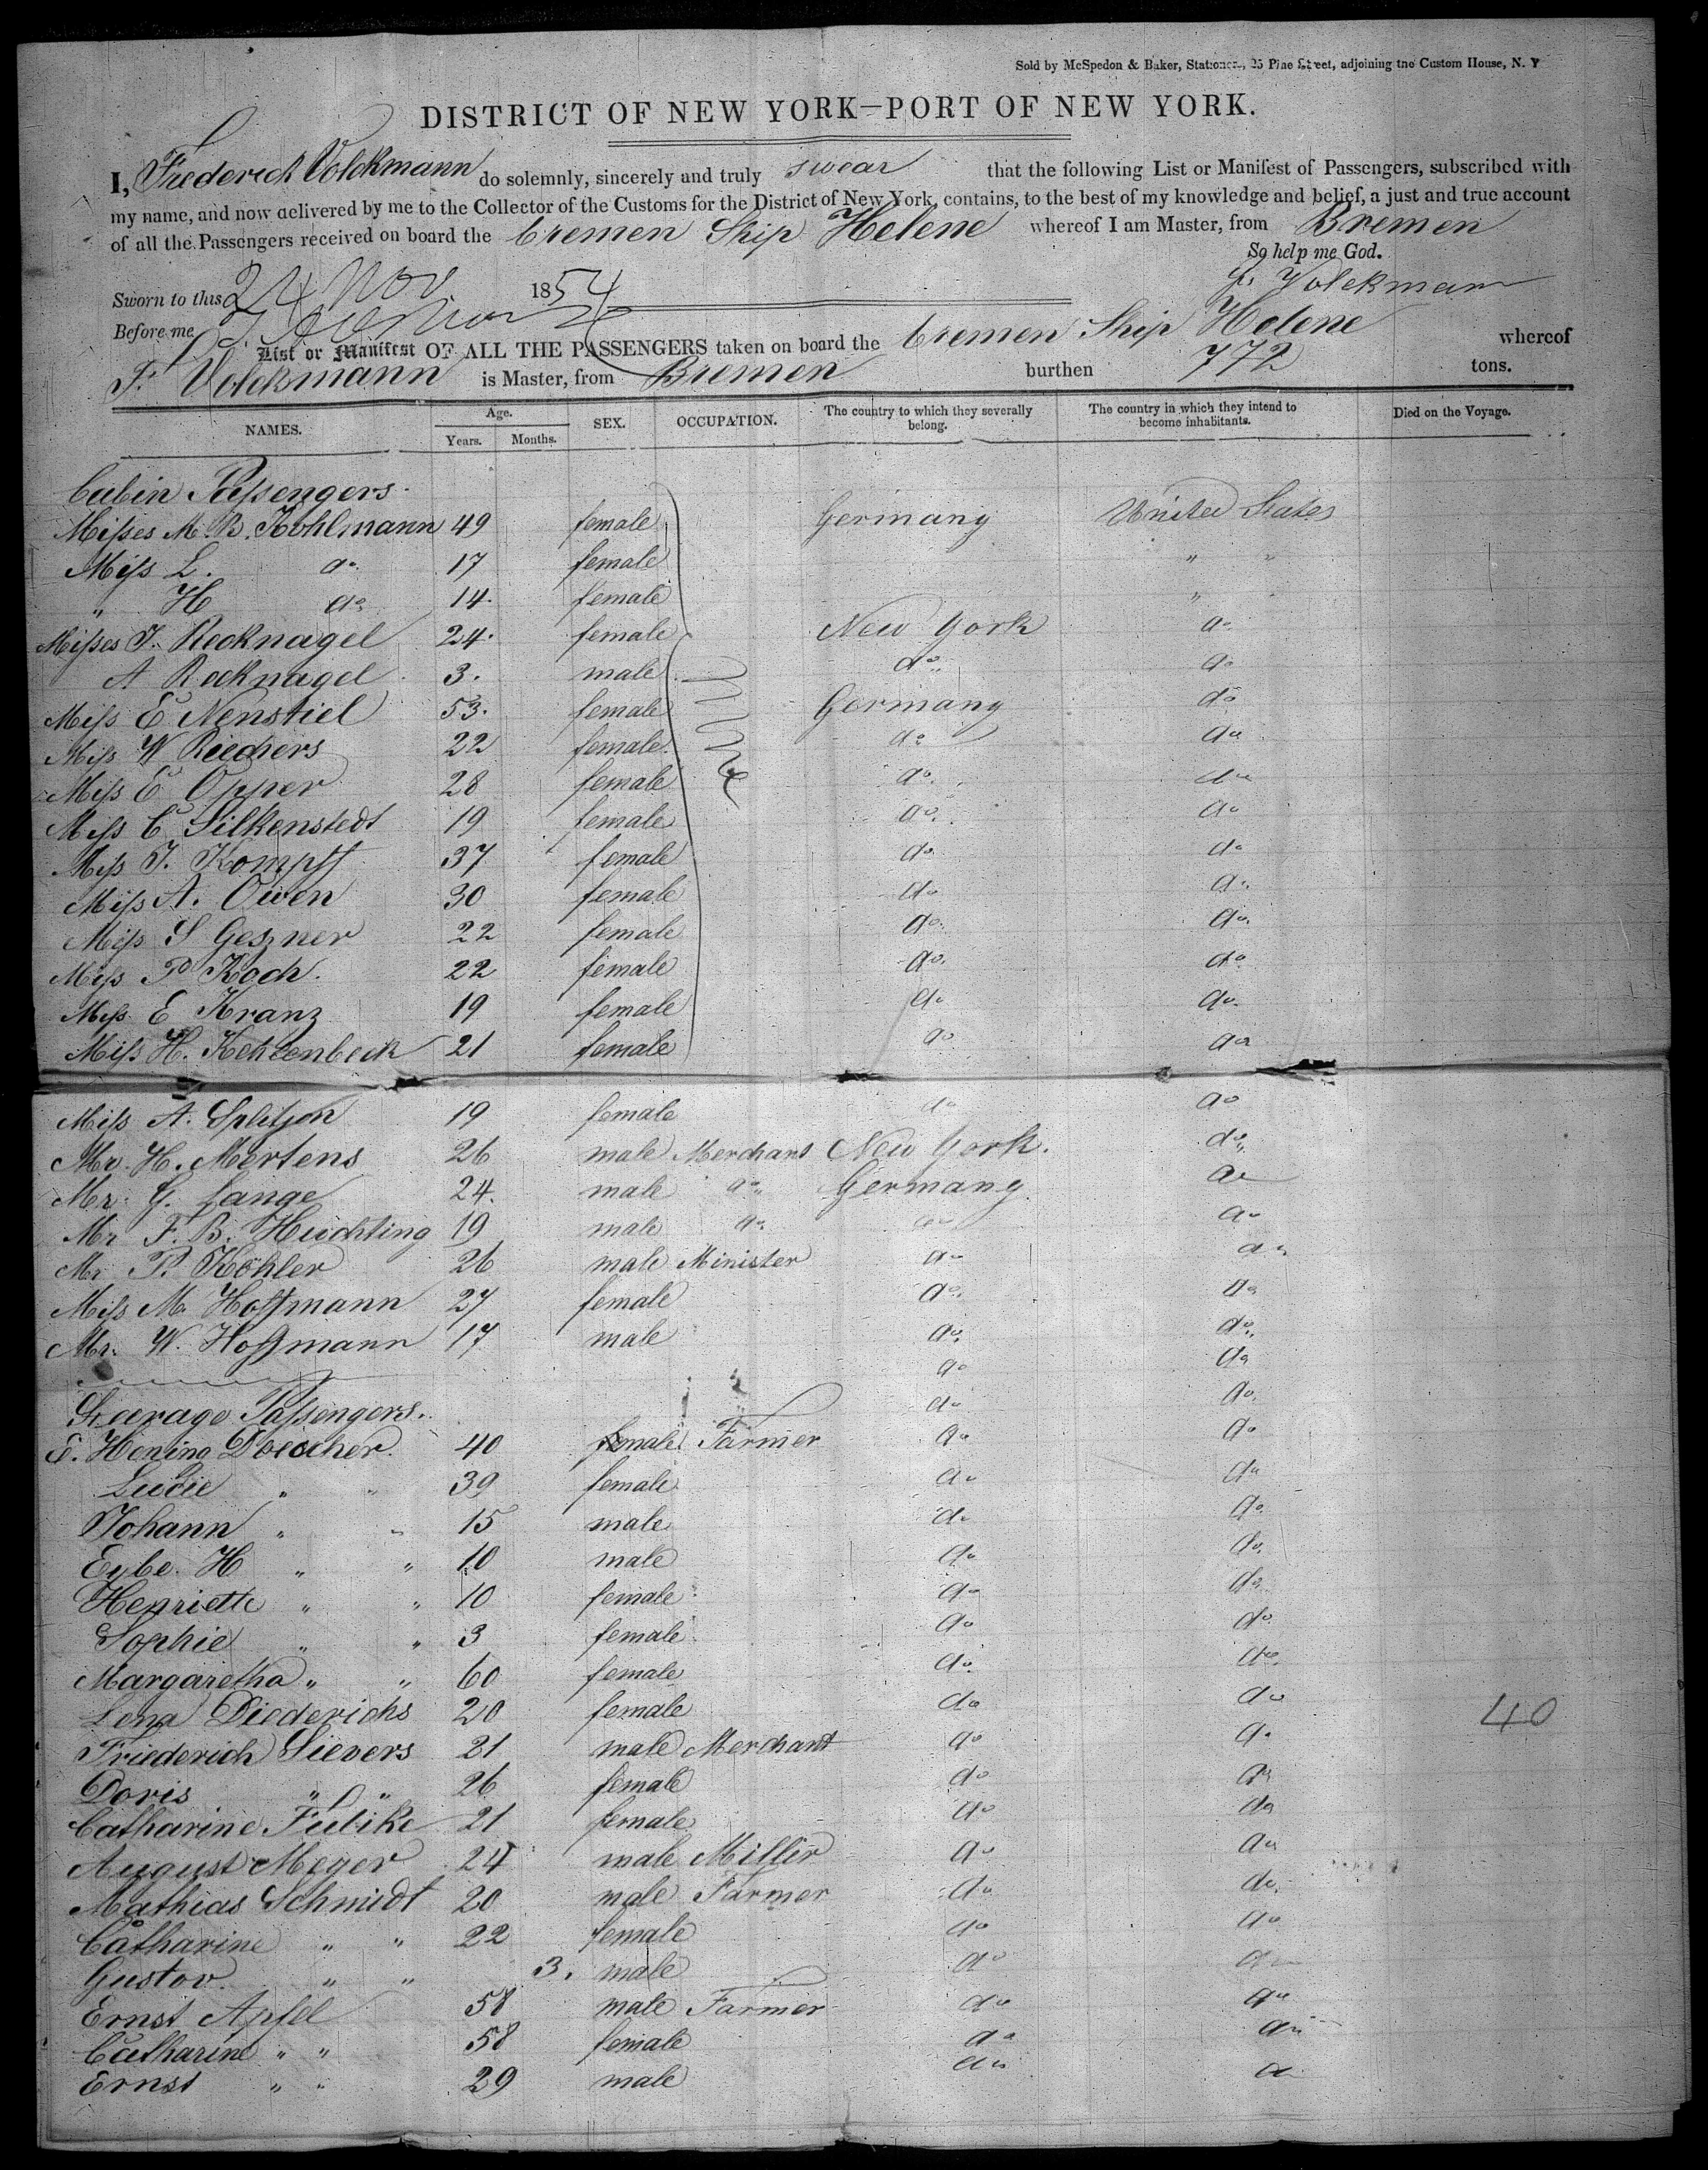 Sold by McSpedon & Baker, Stationers, 25 Pine Street, adjoining the Custom House, N. Y
DISTRICT OF NEW YORK—PORT OF NEW YORK.
I, Frederick Volckmann do solemnly, sincerely and truly swear that the following List or Manifest of Passengers, subscribed with
my name, and now delivered by me to the Collector of the Customs for the District of New York, contains, to the best of my knowledge and belief, a just and true account
of all the Passengers received on board the bremen Ship Helene whereof I am Master, from Bremen
So help me God.
Sworn to this 24 Nov 1854 F. Volckmann
Before me
List or Manifest OF ALL THE PASSENGERS taken on board the bremen Ship Helene whereof
F. Volckmann is Master, from Bremen burthen 772 tons.
NAMES. Age. Years. Months. SEX. OCCUPATION. The country to which they severally belong. The country in which they intend to become inhabitants. Died on the Voyage.
Cabin Passengers.
Misses M. B. Kohlmann 49 female Germany United States
Miss L. do 17 female " "
" H do 14. female "
Misses J. Recknagel 24. female New York do
A Recknagel 3. male do do
Miss E Nenstiel 53. female Germany do
Miss W Riechers 22 female do do
Miss E Opper 28 female do do
Miss C Silkenstedt 19 female do do
Miss J. Kompff 37 female do do
Miss A. Owen 30 female do do
Miss S Geszner 22 female do do
Miss P Koch. 22 female do do
Miss E Kranz 19 female do do
Miss H. Kehlenbeck 21 female do do
Miss A. 19 female do do
Mr. H. Mertens 26 male Merchant New York. do
Mr. G. Lange 24. male do Germany do
Mr F. B. Huchting 19 male do do do
Mr P. Köhler 26 male Minister do do
Miss M. Hoffmann 27 female do do
Mr. W. Hoffmann 17 male do do
do do
Steerage Passengers. do do
E. Hening Doescher 40 male Farmer do do
Lucie " " 39 female do do
Johann " " 15 male do do
Eybe. H " " 10 male do do
Henriette " " 10 female do do
Sophie " " 3 female do do
Margaretha " " 60 female do do
Lena Diederichs 20 female do do 40
Friederich Sievers 21 male Merchant do do
Doris " " 26 female do do
Catharine 21 female do do
August Meyer 24 male Miller do do
Mathias Schmidt 20 male Farmer do do
Catharine " " 22 female do do
Gustov " " 3. male do do
Ernst Apfel 58 male Farmer do do
Catharine " " 58 female do do
Ernst " " 29 male do do